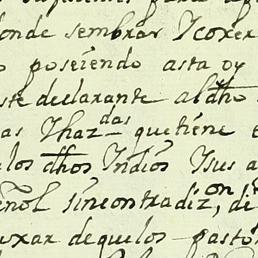 onde sembrar Y coxer
poseiendo asta oy
ste declarante al dho
as Y haz.das que tiene e
los dhos Indios Y sus a
ñol sin contradiz,on de
uxar de quelos pastor